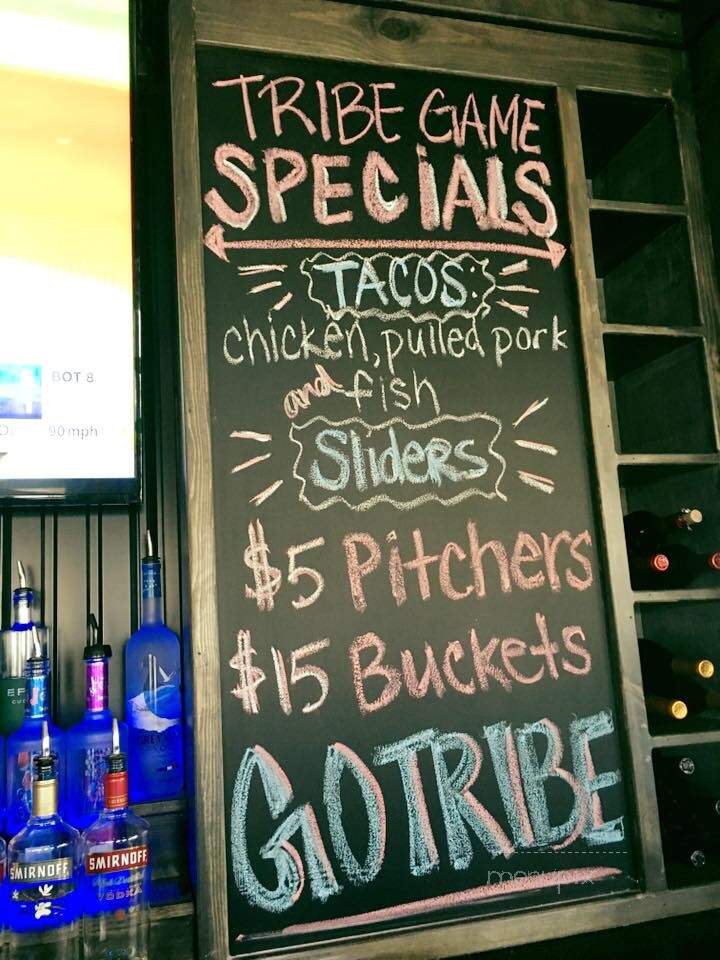 TRIBE GAME
SPECIALS
TACOS:
chicken, pulled pork
and fish
Sliders
$5 Pitchers
$15 Buckets
GO TRIBE
BOT 8
90mph
SMIRNOFF
SMIRNOFF
VODKA
menupix